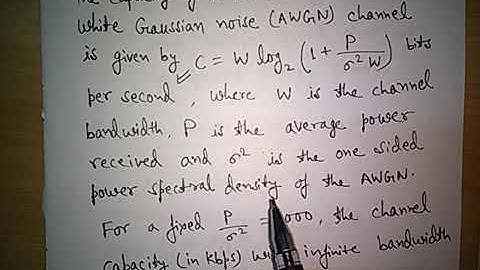 the capacity of
White Gaussian noise (AWGN) channel
is given by C = W log₂ (1 + P/σ²W) bits
per second, where W is the channel
bandwidth, P is the average power
received and σ² is the one sided
power spectral density of the AWGN.
For a fixed P/σ² = 000, the channel
capacity (in kbps) with infinite bandwidth